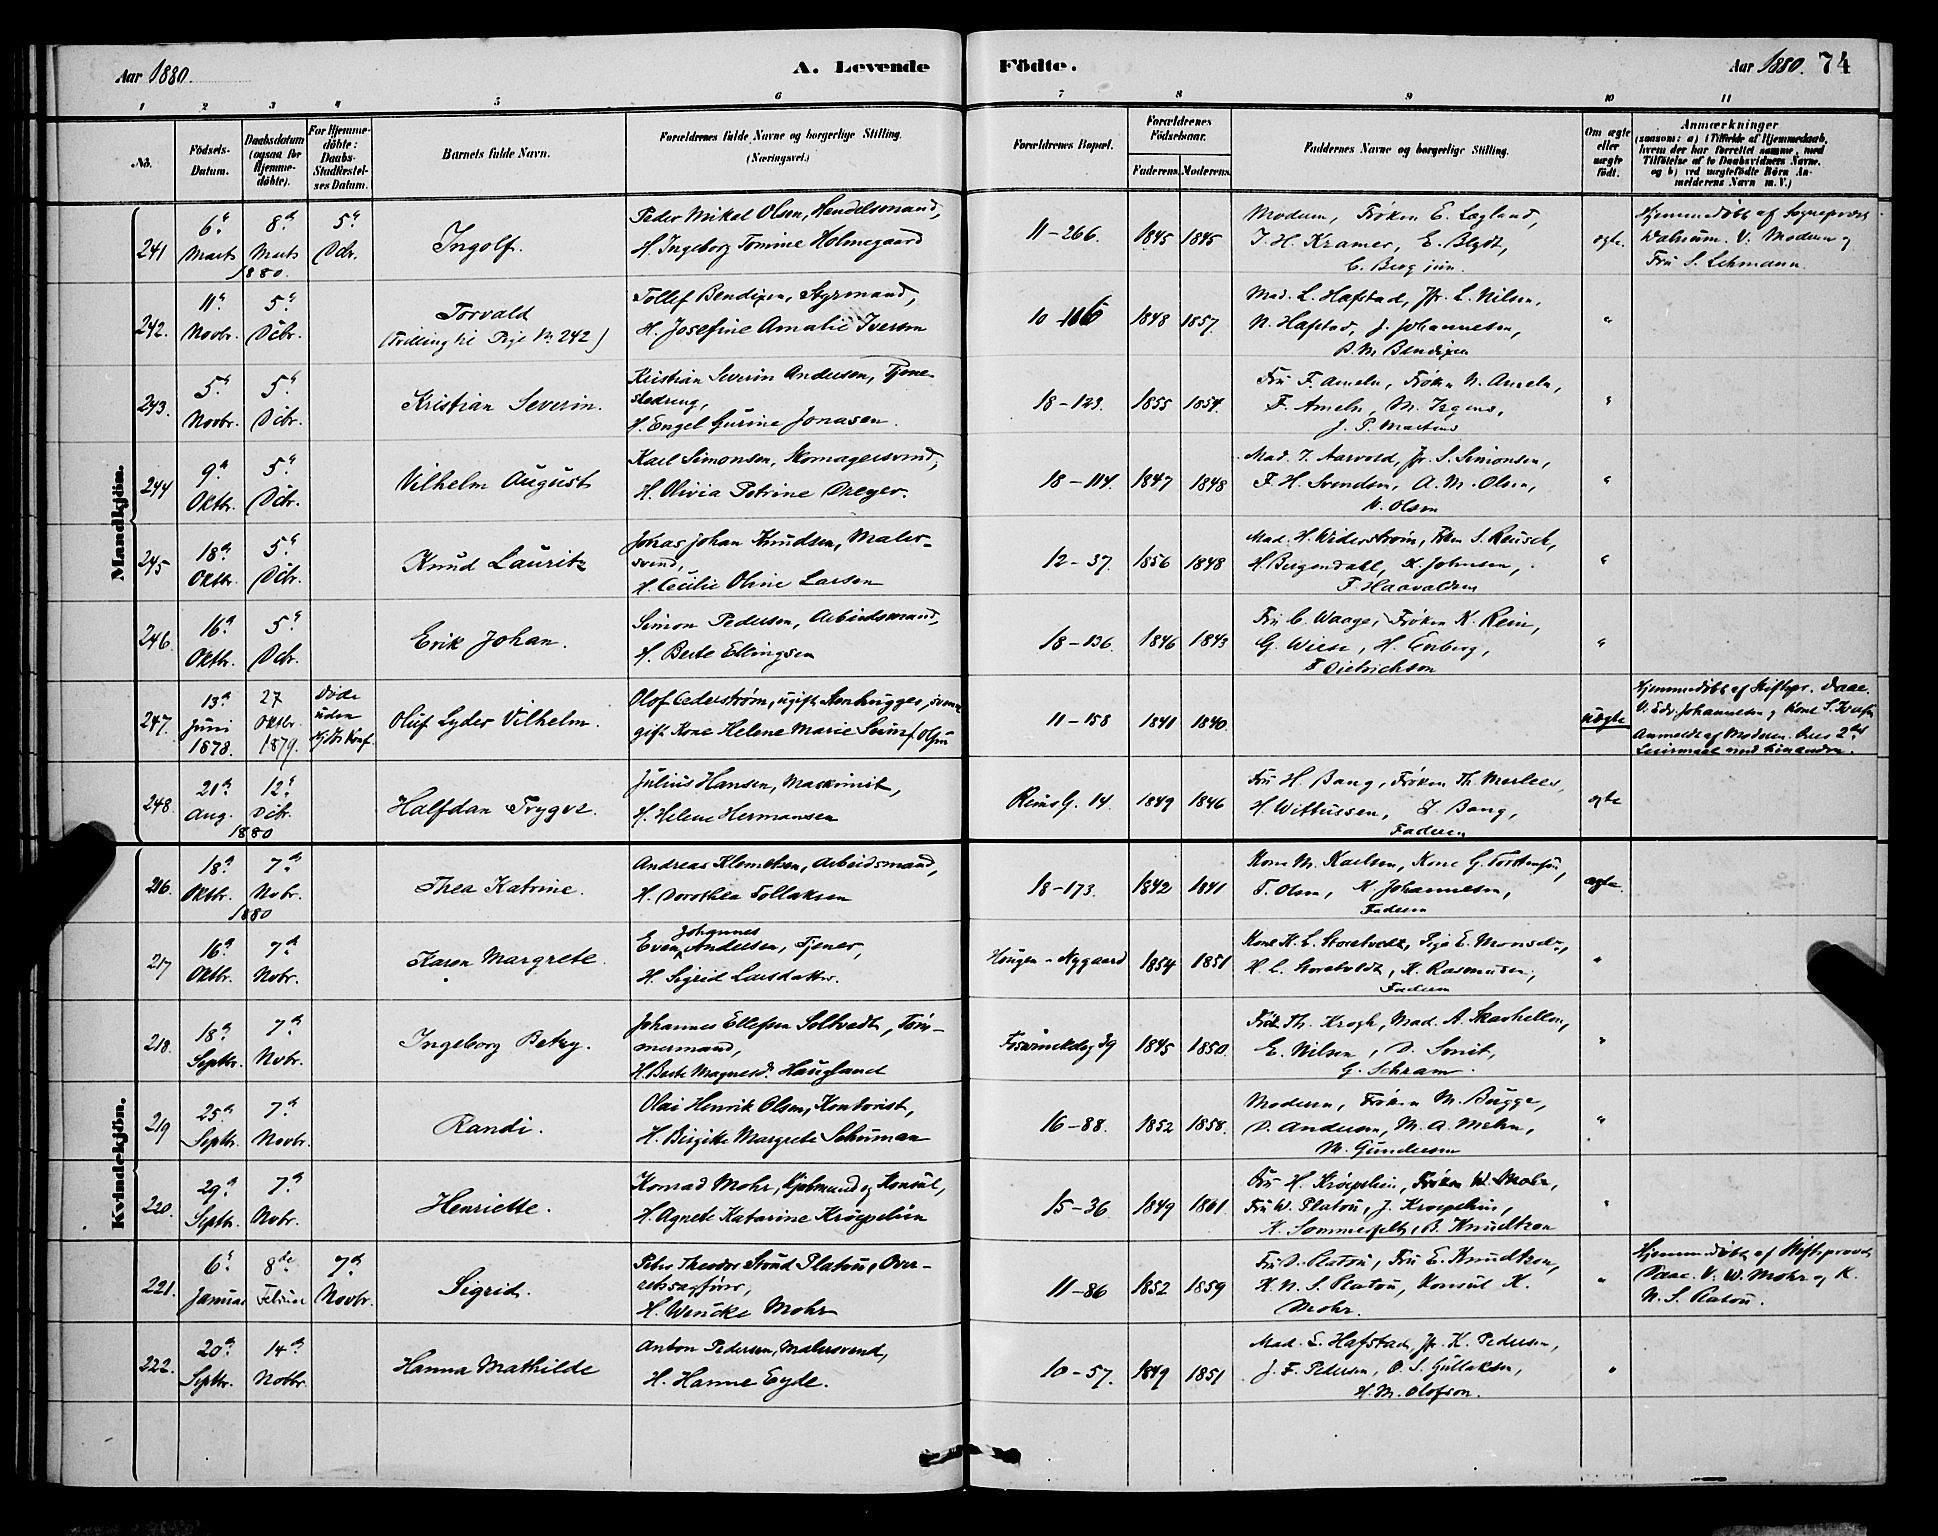 Aar 1880.
A. Levende
Födte.
Aar 1880. 74
1 2 3 4 5 6 7 8 9 10 11
No.
Födsels-
Datum.
Daabsdatum
(ogsaa for
Hjemme-
döbte).
For Hjemme-
döbte:
Daabs-
Stadfæstel-
ses Datum.
Barnets fulde Navn.
Forældrenes fulde Navne og borgerlige Stilling.
(Næringsvei.)
Forældrenes Bopæl.
Forældrenes
Födselsaar.
Faderens. Moderens.
Faddernes Navne og borgerlige Stilling.
Om ægte
eller
uægte
födt.
Anmærkninger
(saasom: a) i Tilfælde af Hjemmedaab,
hvem der har forrettet samme, med
Tilföielse af to Daabsvidners Navne,
og b) ved uægtefödte Börn An-
melderens Navn m. V.)
Mandkjön.
241
6te
Marts
8de
Marts
1880.
5te
Dcbr.
Ingolf.
Peder Mikal Olsen, Handelsmand,
H. Ingeborg Tomine Holmegaard
11-266.
1845 1845
Moderen, Frøken E. Lagland,
J. H. Kramer, E. Blydt,
C. Berg jun.
ægte.
Hjemmedöbt af Sogneprest
Walnum. V. Moderen og
Fru S. Lehmann.
242.
11te
Novbr.
5te
Dcbr.
Torvald
(Tvilling til Pige No 242)
Tollef Bendixen, Styrmand,
H. Josefine Amalie Iversen
10-116
1848 1857.
Mad. L. Hafstad, Jfr. L. Nilsen,
N. Hafstad, J. Johannesen,
P. M. Bendixen
"
243.
5te
Novbr.
5te
Dcbr.
Kristian Severin.
Kristian Severin Andersen, Tjene-
stedreng,
H. Engel Gurine Jonasen.
18-129.
1855 1854.
Fru F. Ameln, Frøken N. Ameln,
F. Ameln, M. Irgens,
J. P. Martens
"
244
9de
Oktbr.
5te
Dcbr.
Vilhelm August
Karl Simonsen, Skomagersvend,
H. Olivia Petrine Dreyer.
18-114.
1847 1848
Mad. J. Aarvold, Jfr. S. Simonsen,
F. H. Svendsen, A. M. Olsen,
N. Olsen
"
245
18de
Oktbr.
5te
Dcbr.
Knud Lauritz
Jonas Johan Knudsen, Maler-
svend,
H. Cecilie Oline Larsen
12-37.
1856 1848
Mad. H. Widerstrøm, Frkn S. Reusch,
H. Bergendahl, K. Johnsen,
T. Haavaldsen
"
246.
16de
Oktbr.
5te
Dcbr.
Erik Johan.
Simon Pedersen, Arbeidsmand,
H. Berte Ellingsen
18-136.
1846 1843
Fru C. Waage, Frøken K. Rein,
G. Wiese, H. Enberg,
F. Dietrichson
"
247.
13de
Juni
1878.
27
Oktbr.
1879.
døde
uden
Olüf Lyder Vilhelm.
Olof Cederstrøm, ugift Stenhugger, svensk
gift Kone Helene Marie
11-158
1841 1840.
uægte
Hjemmedöbt af Stiftspr. Daae.
V. Edv. Johannesen og Kone
Anmeldt af Moderen. Deres 2det
Leiermaal med hinanden.
248.
21de
Aug.
12te
Dcbr.
1880
Halfdan Trygve.
Julius Hansen, Maskinist,
H. Helene Hermansen
Rems G. 14.
1849 1846
Fru H. Bang, Frøken Th. Merlees,
H. Wittussen, J. Bang,
Faderen
ægte
Kvindekjön.
216.
18de
Oktbr.
7de
Nobr.
1880
Thea Katrine.
Andreas Klemetsen, Arbeidsmand,
H. Dorothea Tollaksen
18-173.
1842 1841
Kone M. Karlsen, Kone G. Torstensen,
T. Olsen, K. Johannesen,
Faderen
ægte.
217
16de
Oktbr.
7de
Nobr.
Karen Margrete.
Johannes
Even Andersen, Tjener,
H. Sigrid Larsdatter.
Haugen - Nygaard
1854 1851
Kone K. L. Storetvedt, Pige E. Monsen,
H. L. Storetvedt, K. Rasmusen,
Faderen
"
218.
18de
Septbr.
7de
Novbr.
Ingeborg Betzy.
Johannes Ellefsen Soltvedt, Töm-
mermand,
H. Berte Magnesd. Haugland
1845 1850.
Frk. Th. Krogh, Mad. A. Skarhellen,
E. Nilsen, D. Smit,
G. Schram.
"
219
25de
Septbr.
7de
Novbr.
Randi.
Olai Henrik Olsen, Kontorist,
H. Birgitte Margrete Schuman
16-88.
1852 1858.
Moderen, Frøken M. Bugge,
D. Andersen, M. A. Mehn,
M. Gundersen
"
220.
29de
Septbr.
7de
Nobr.
Henriette.
Konrad Mohr, Kjøbmand og Konsul,
H. Agnete Katarine Krøepelien
15-36
1849 1861.
Fru H. Krøepelien, Frøken W. Mohr,
Fru W. Platou, J. Kroepelien,
K. Sommerfelt, B. Knudtzon
"
221.
6te
Januar
8de
Februar
7de
Novbr.
Sigrid.
Peter Theodor Stoud Platou, Over-
retssagfører,
H. Wencke Mohr
11-86
1852 1859
Fru D. Platou, Fru E. Knudtzon,
K. N. S. Platou, Konsul K.
Mohr.
"
Hjemmedöbt af Stiftsprovst
Daae. V. W. Mohr og K.
N. S. Platou.
222.
20de
Septbr.
14de
Novbr.
Hanna Mathilde
Anton Pedersen, Malersvend,
H. Hanne Eyde.
10-57.
1849 1851
Mad. L. Hafstad, Jfr. K. Pedersen,
J. F. Pedersen, O. S. Gullaksen,
H. M. Olofson.
"